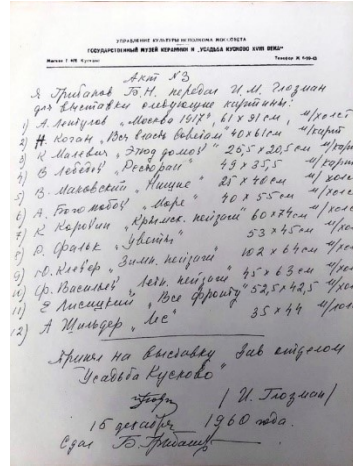 УПРАВЛЕНИЕ КУЛЬТУРЫ ИСПОЛКОМА МОССОВЕТА
ГОСУДАРСТВЕННЫЙ МУЗЕЙ КЕРАМИКИ И „УСАДЬБА КУСКОВО XVIII ВЕКА"
Москва Кусково Телефон
Акт №3
Я Грибанов Б.Н. передал И.М. Глозман
для выставки следующие картины:
1) А. Лентулов „Москва 1917", 61 х 91 см, м/холст
2) Н. Коган „Вся власть Советам" 40х61см м/карт
3) К. Малевич „Этюд домов" 26,5х20,5см м/карт
4) В. Лебедев „Ресторан" 49 х 35,5 м/карт
5) В. Маковский „Нищие" 25 х 40 см м/холст
6) А. Богомазов „Море" 40 х 55 см м/холс
7) К. Коровин „Крымск. пейзаж" 60х74см м/холс
8) Р. Фальк „Цветы" 53 х 45 см м/хо
9) Ю. Клевер „Зимн. пейзаж" 102 х 64 см м/хол
10) Ф. Васильев „Летн. пейзаж" 45 х 63 см м/хол
11) Е. Лисицкий „Все фронту" 52,5 х 42,5 м/х
12) А Шильдер „Лес" 35 х 44 м/хо
Принял на выставку Зав отделом
"Усадьба Кусково"
/ И. Глозман /
15 декабря 1960 года.
Сдал Б. Грибанов